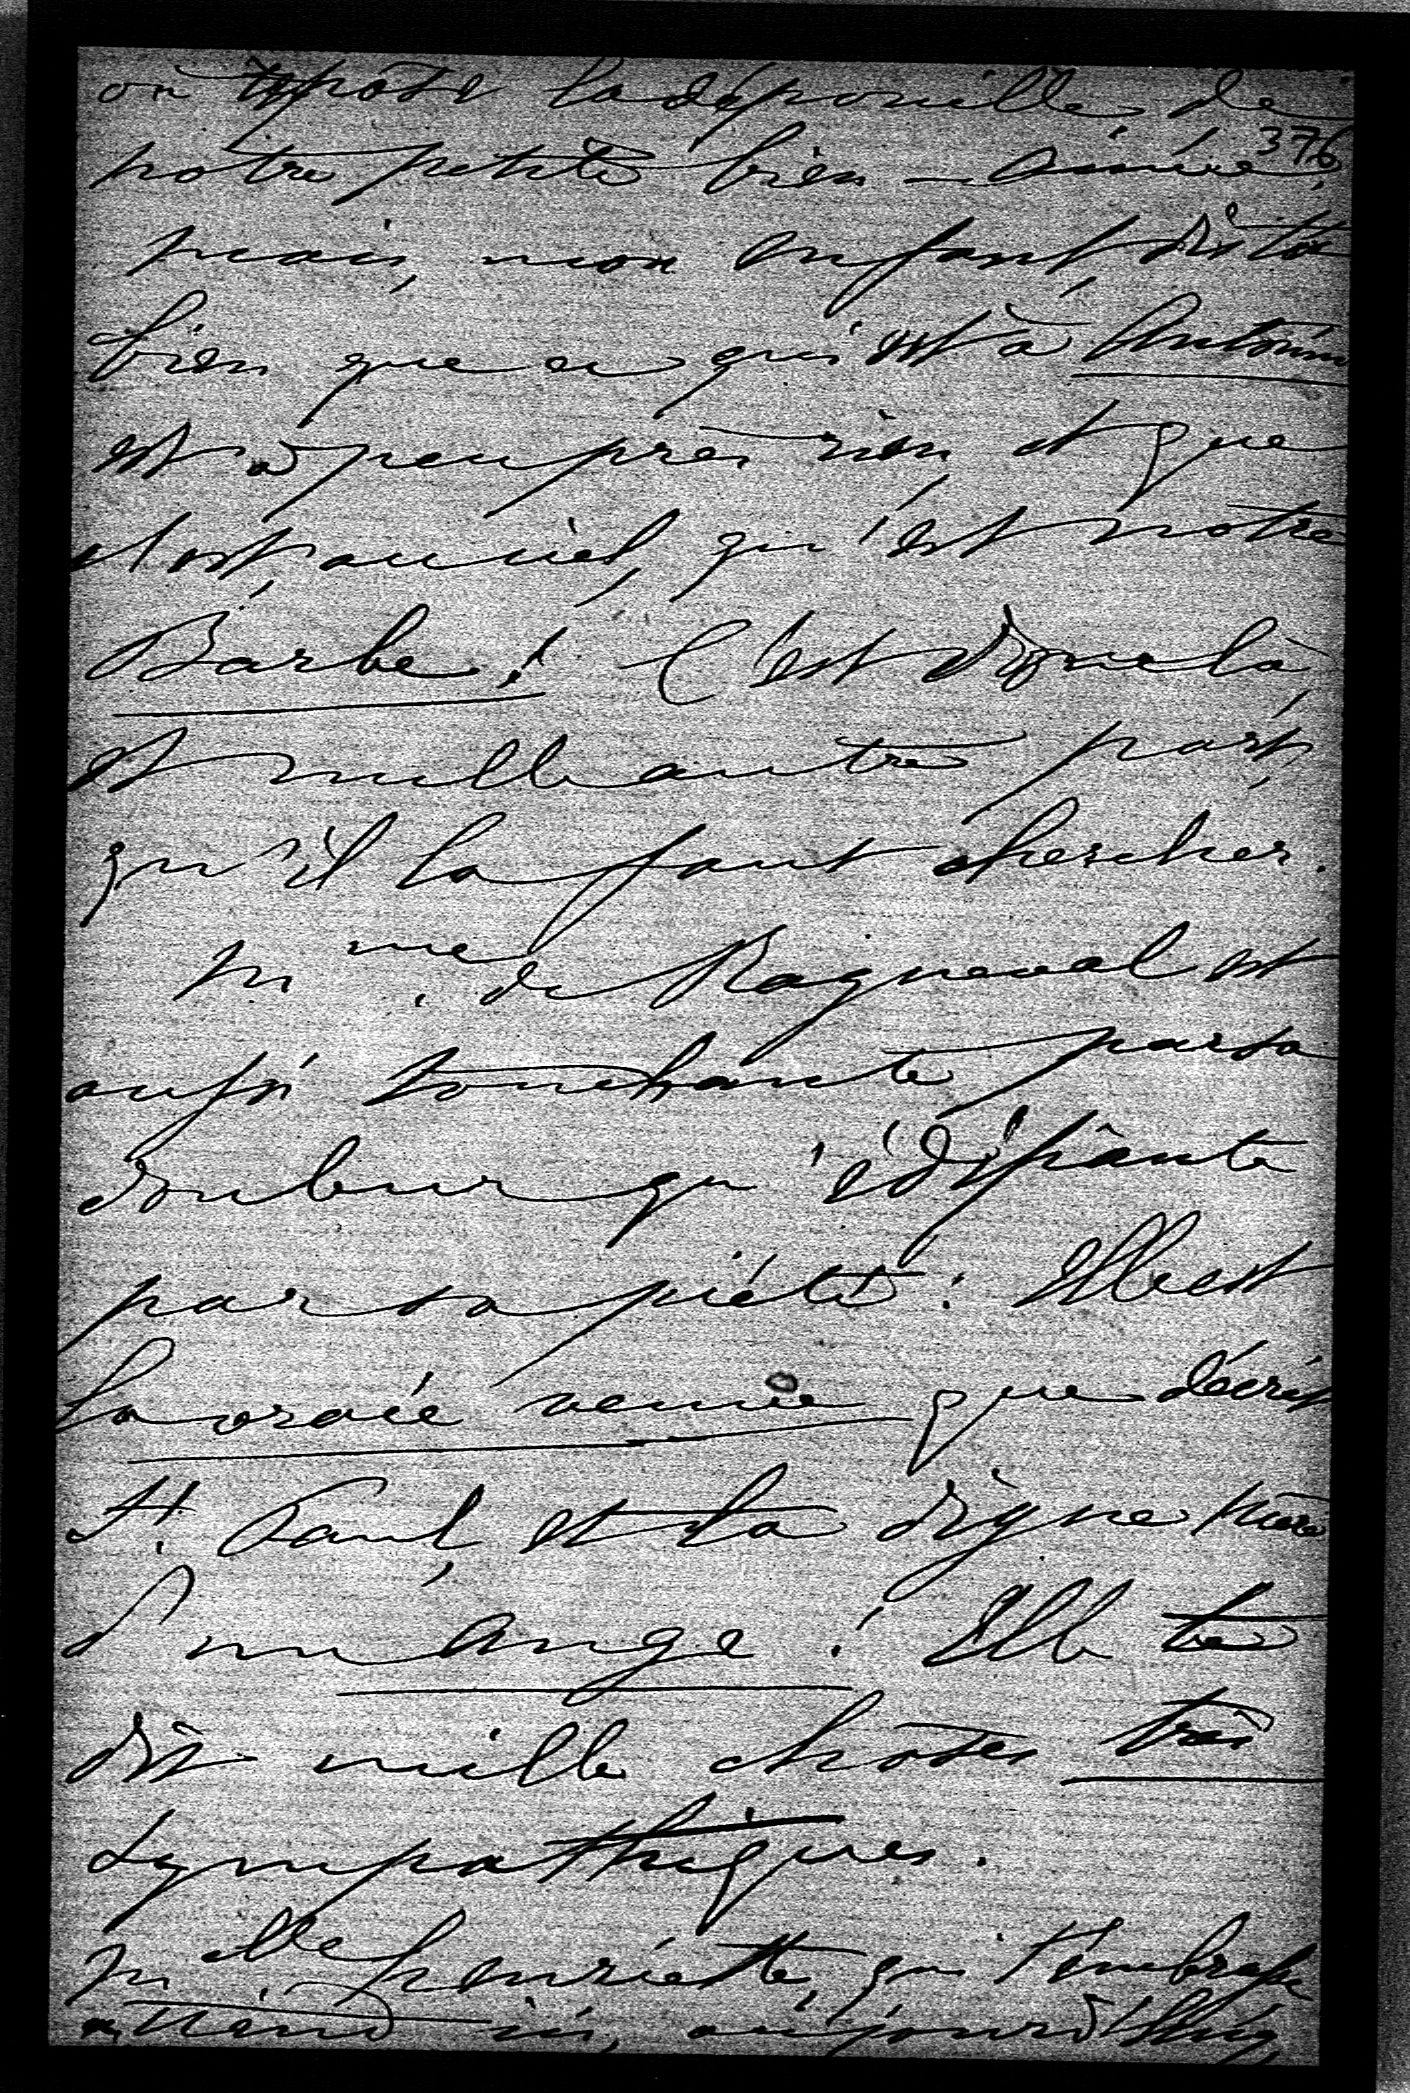 où repose la dépouille de
376
notre petite bien-aimée;
mais, mon enfant, dis toi
bien que ce qui est à Antoinin
est à peu près rien, et que
c'est au ciel, qu'est notre
Barbe! C'est donc là,
et nulle autre part,
qu'il la faut chercher.
Mme. de Raigneval est
aussi touchante par sa
douleur qu'édifiante
par sa piété: Elle est
la vraie veuve que décrit
St. Paul, et la digne mère
d'un ange! Elle te
dit mille choses très
sympathiques.
Mlle henriette, qui t'embrasse
attend ici, aujourd'hui,